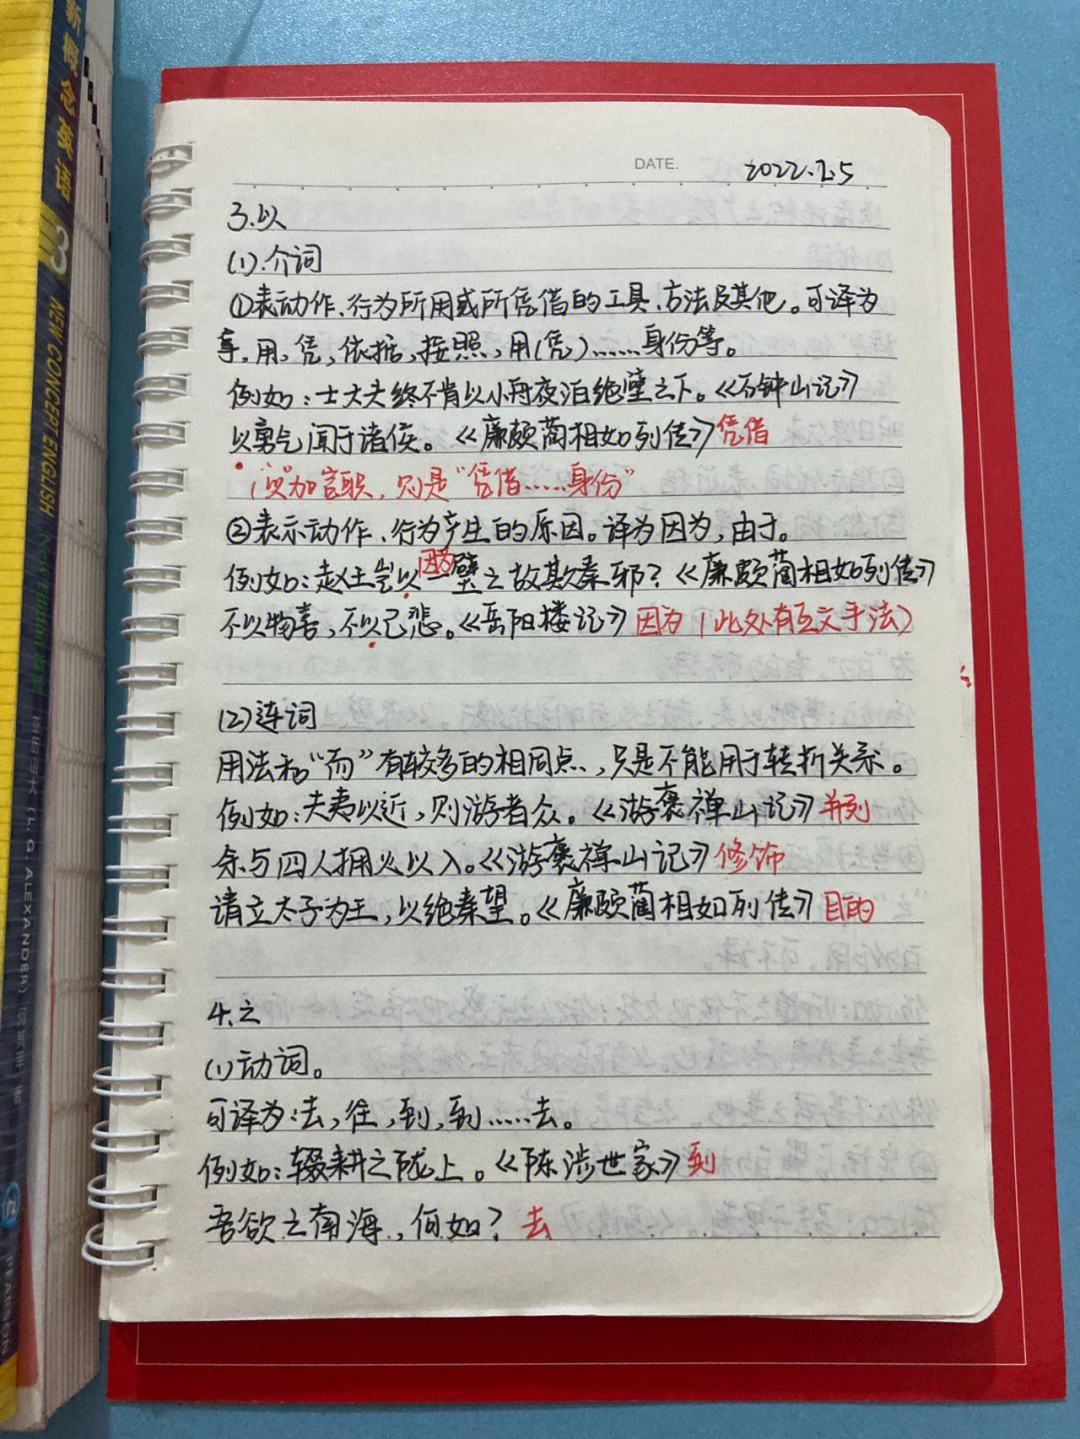 新概念英语
3
NEW CONCEPT ENGLISH
New Edition
(L. G. ALEXANDER)
PEARSON
DATE. 2022.2.5
3.以
(1).介词
①表动作、行为所用或所凭借的工具、方法及其他。可译为
拿,用,凭,依据,按照,用(凭)……身份等。
例如:士大夫终不肯以小舟夜泊绝壁之下。《石钟山记》
以勇气闻于诸侯。《廉颇蔺相如列传》凭借
("以"加官职,则是"凭借……身份"
②表示动作、行为产生的原因。译为因为,由于。
因为
例如:赵王岂以一璧之故欺秦邪?《廉颇蔺相如列传》
不以物喜,不以己悲。《岳阳楼记》因为(此处有互文手法)
(2)连词
用法和"而"有较多的相同点,只是不能用于转折关系。
例如:夫夷以近,则游者众。《游褒禅山记》并列
余与四人拥火以入。《游褒禅山记》修饰
请立太子为王,以绝秦望。《廉颇蔺相如列传》目的
4.之
(1)动词。
可译为:去,往,到,到……去。
例如:辍耕之陇上。《陈涉世家》到
吾欲之南海,何如?去